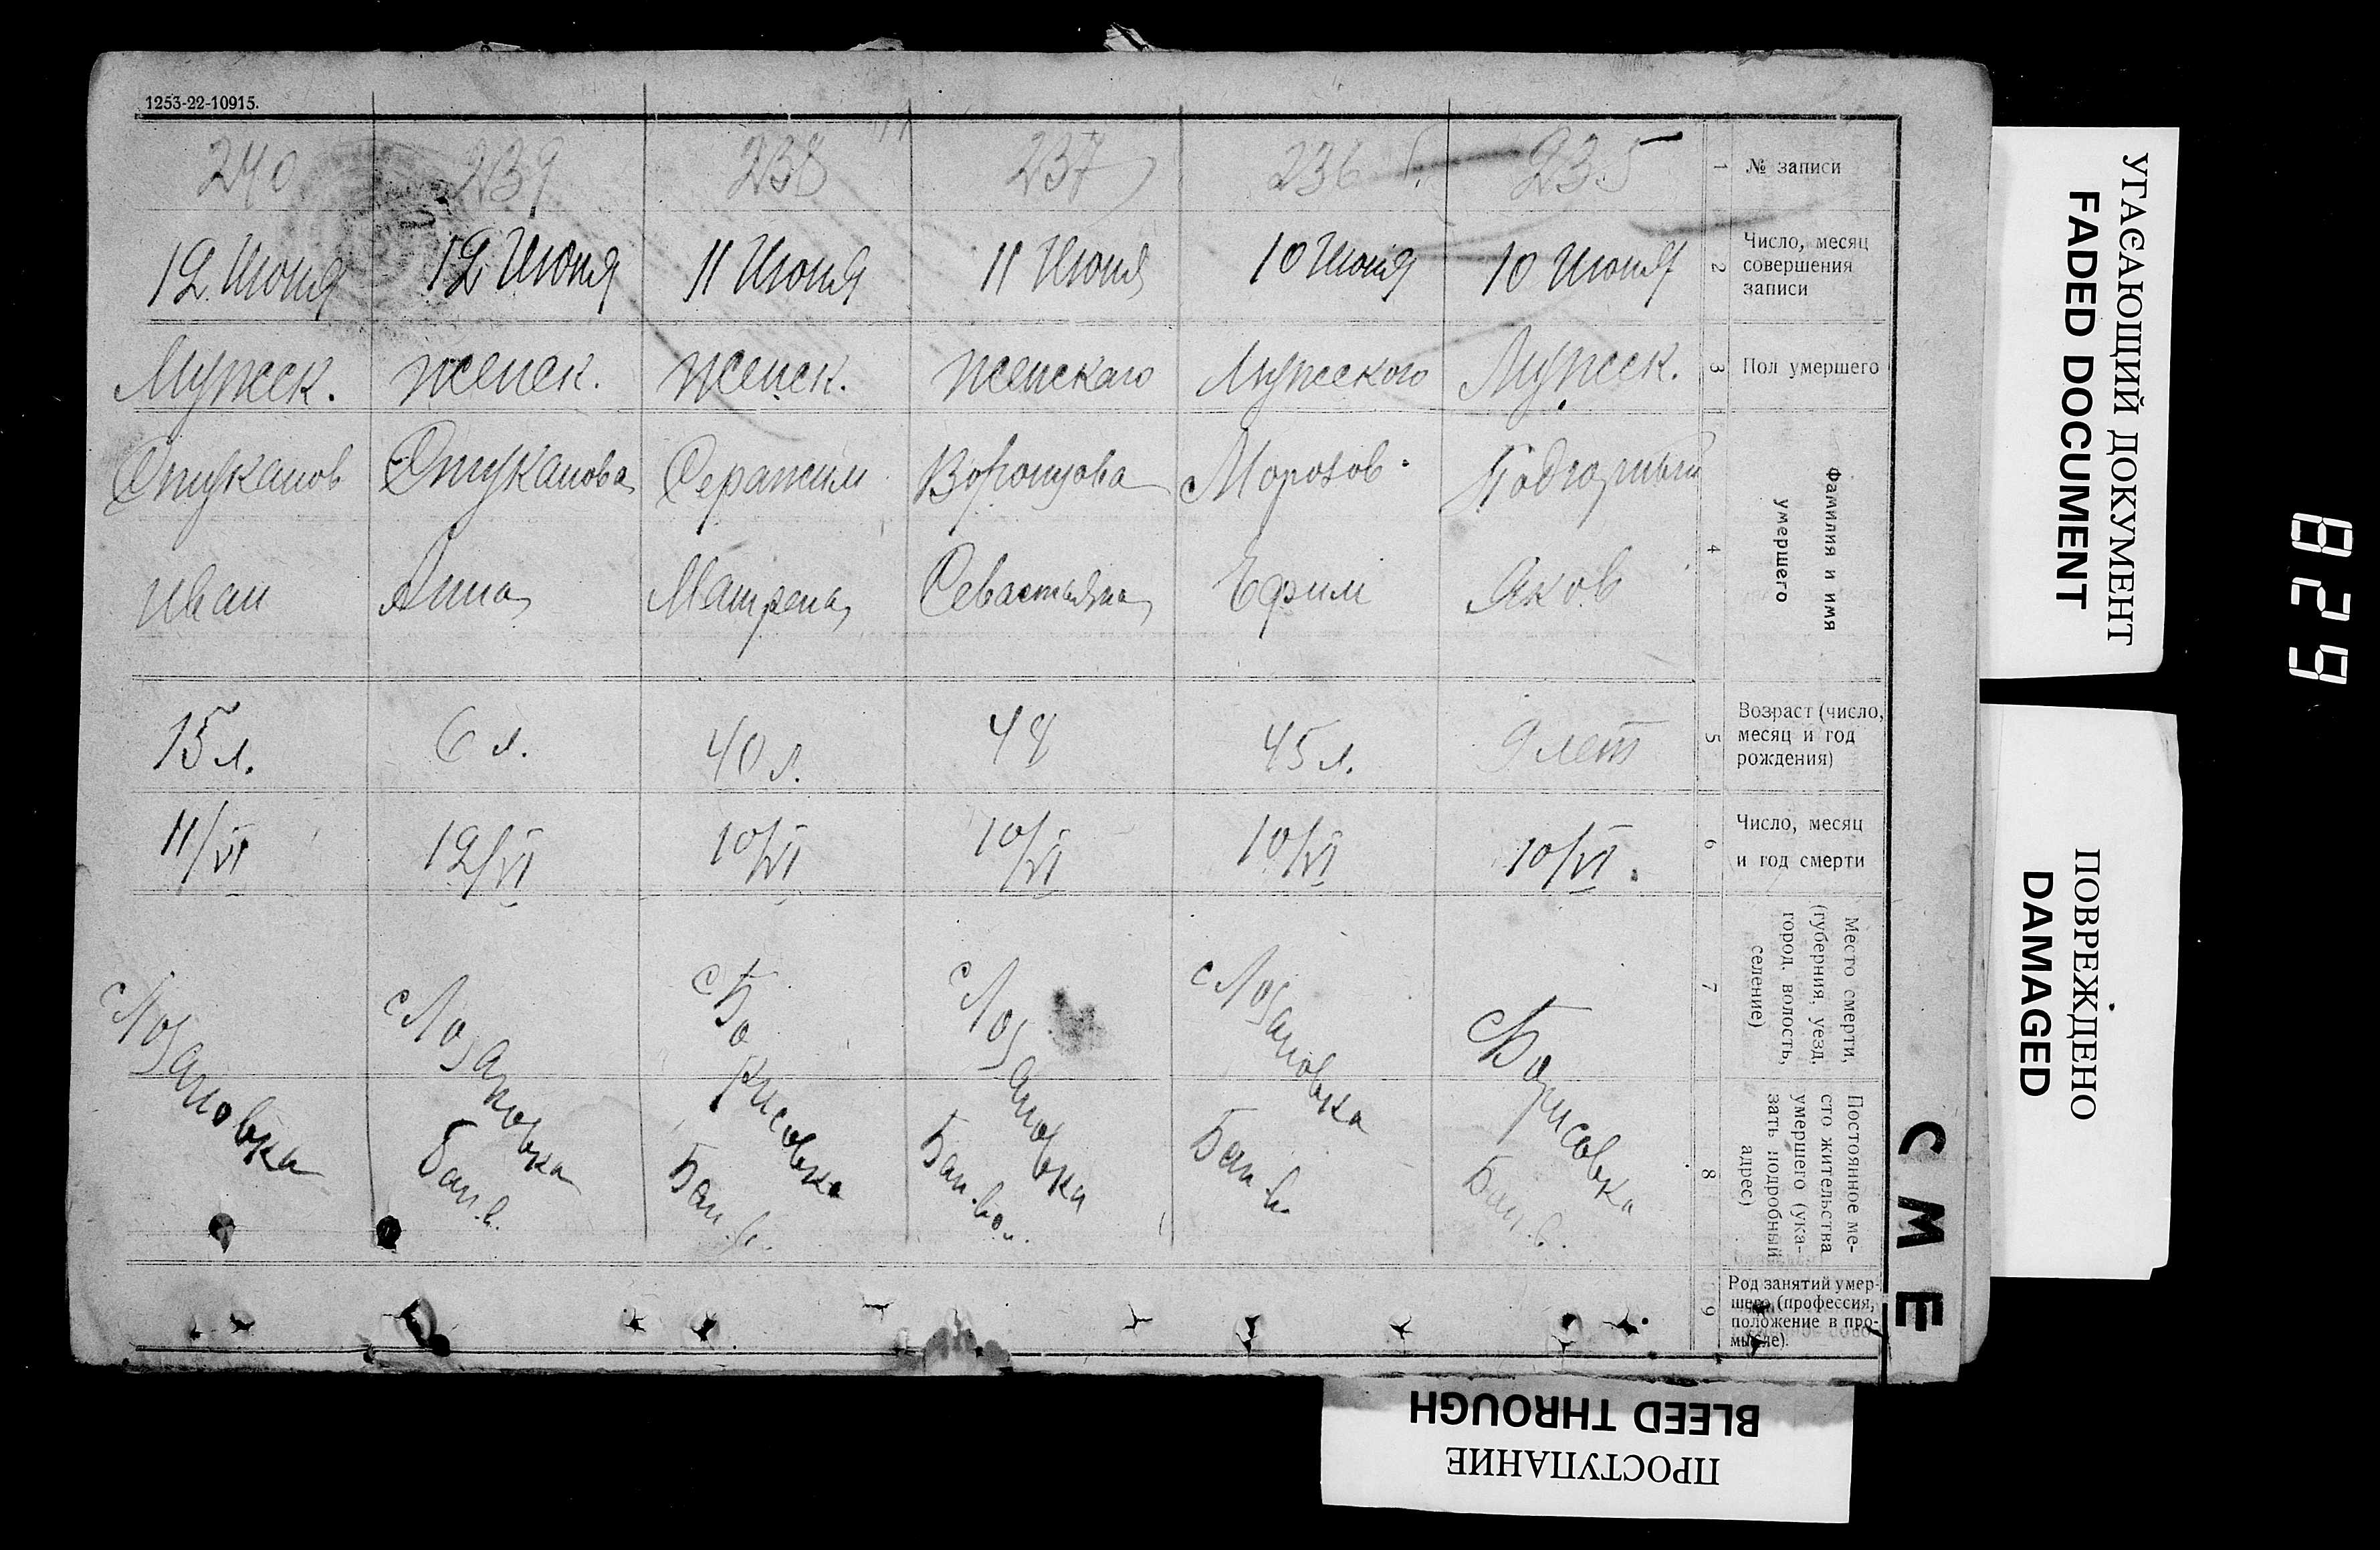 1253-22-10915.
240 239 238 237 236 235 1 № записи
12 Июня 12 Июня 11 Июня 11 Июня 10 Июня 10 Июня 2 Число, месяц
совершения
записи
Мужск. женск. женск. женскаго Мужского Мужск. 3 Пол умершего
Стуканов Стуканова Воронцова Морозов Подгорный
Иван Анна Матрена Севастьяна Ефим Яков 4
Фамилия и имя
умершего
15 л. 6 л. 40 л. 44 45 л. 9 лет 5 Возраст (число,
месяц и год
рождения)
11/VI 12/VI 10/VI 10/VI 10/VI 10/VI. 6 Число, месяц
и год смерти
с Лозановка с Лозановка с Борисовка с Лозановка с Лозановка с Борисовка 7
Место смерти,
(губерния, уезд,
город, волость,
селение)
Бан. в. Бан. в. Бан. во. Бан. в. Бан. в. 8
Постоянное ме-
сто жительства
умершего (ука-
зать подробный
адрес)
9 Род занятий умер-
шего (профессия,
положение в про-
мысле).
УГАСАЮЩИЙ ДОКУМЕНТ
FADED DOCUMENT
ПОВРЕЖДЕНО
DAMAGED
СМЕ
829
BLEED THROUGH
ПРОСТУПАНИЕ